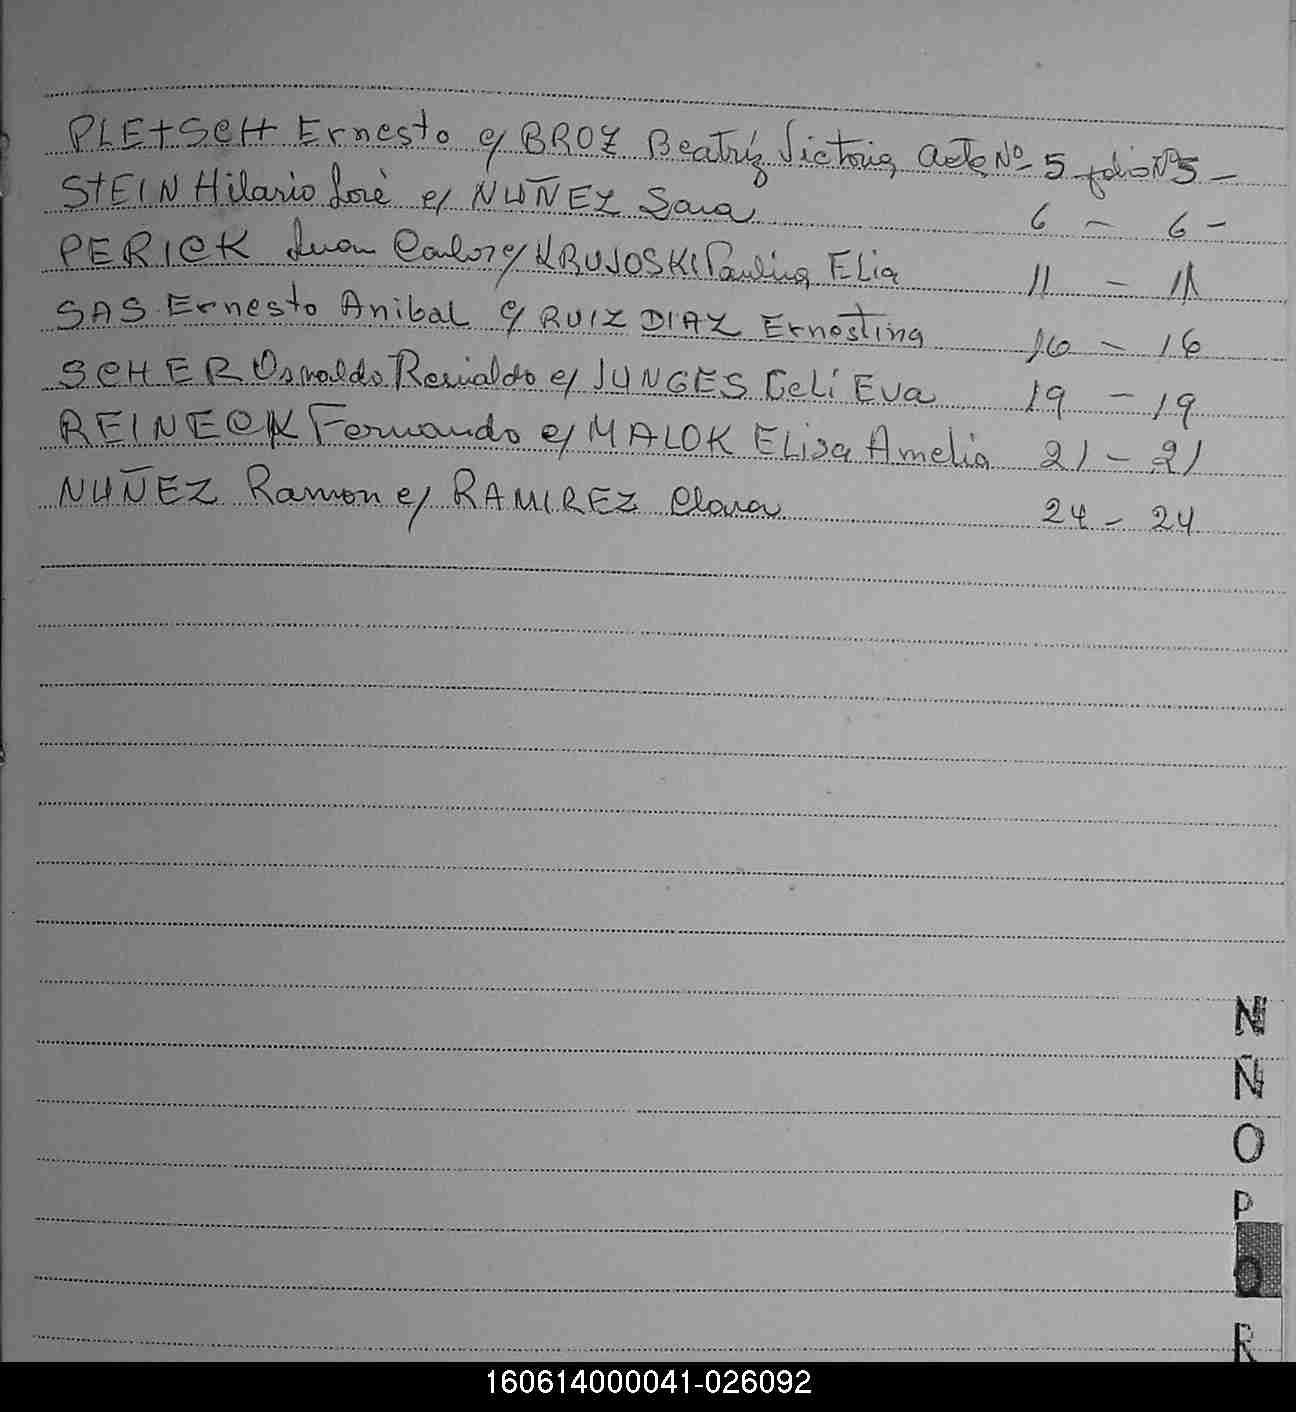 PLETSCH Ernesto c/ BROZ Beatríz Victoria Acta Nº 5 folio Nº 5 -
STEIN Hilario José c/ NUÑEZ Sara 6 - 6 -
PERICK Juan Carlos c/ KRUJOSKI Paulina Elia 11 - 11
SAS Ernesto Anibal c/ RUIZ DIAZ Ernestina 16 - 16
SCHER Osvaldo Reinaldo c/ JUNGES Celi Eva 19 - 19
REINECK Fernando c/ MALOK Elisa Amelia 21 - 21
NUÑEZ Ramon c/ RAMIREZ Clara 24 - 24
N
Ñ
O
P
Q
R
160614000041-026092